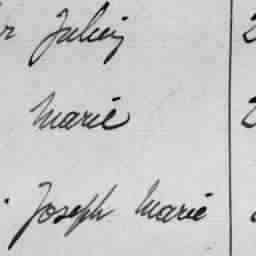 Julien
Marie
Joseph Marie